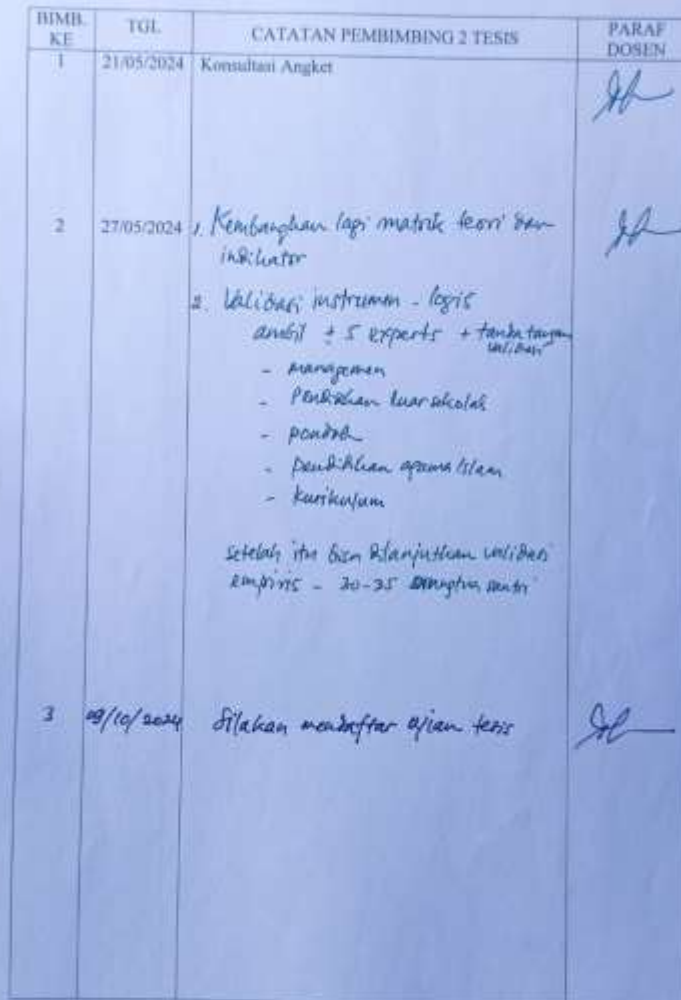 BIMB. KE TGL CATATAN PEMBIMBING 2 TESIS PARAF DOSEN
1 21/05/2024 Konsultasi Angket
2 27/05/2024 1. Kembangkan lagi matrik teori dan
indikator
2. Validasi instrumen - logis
ambil ± 5 experts + tanda tangan
validasi
- manajemen
- Pendidikan luar sekolah
- pondok
- pendidikan agama Islam
- Kurikulum
setelah itu bisa dilanjutkan validasi
empiris - 30-35 santri
3 09/10/2024 Silakan mendaftar ujian tesis